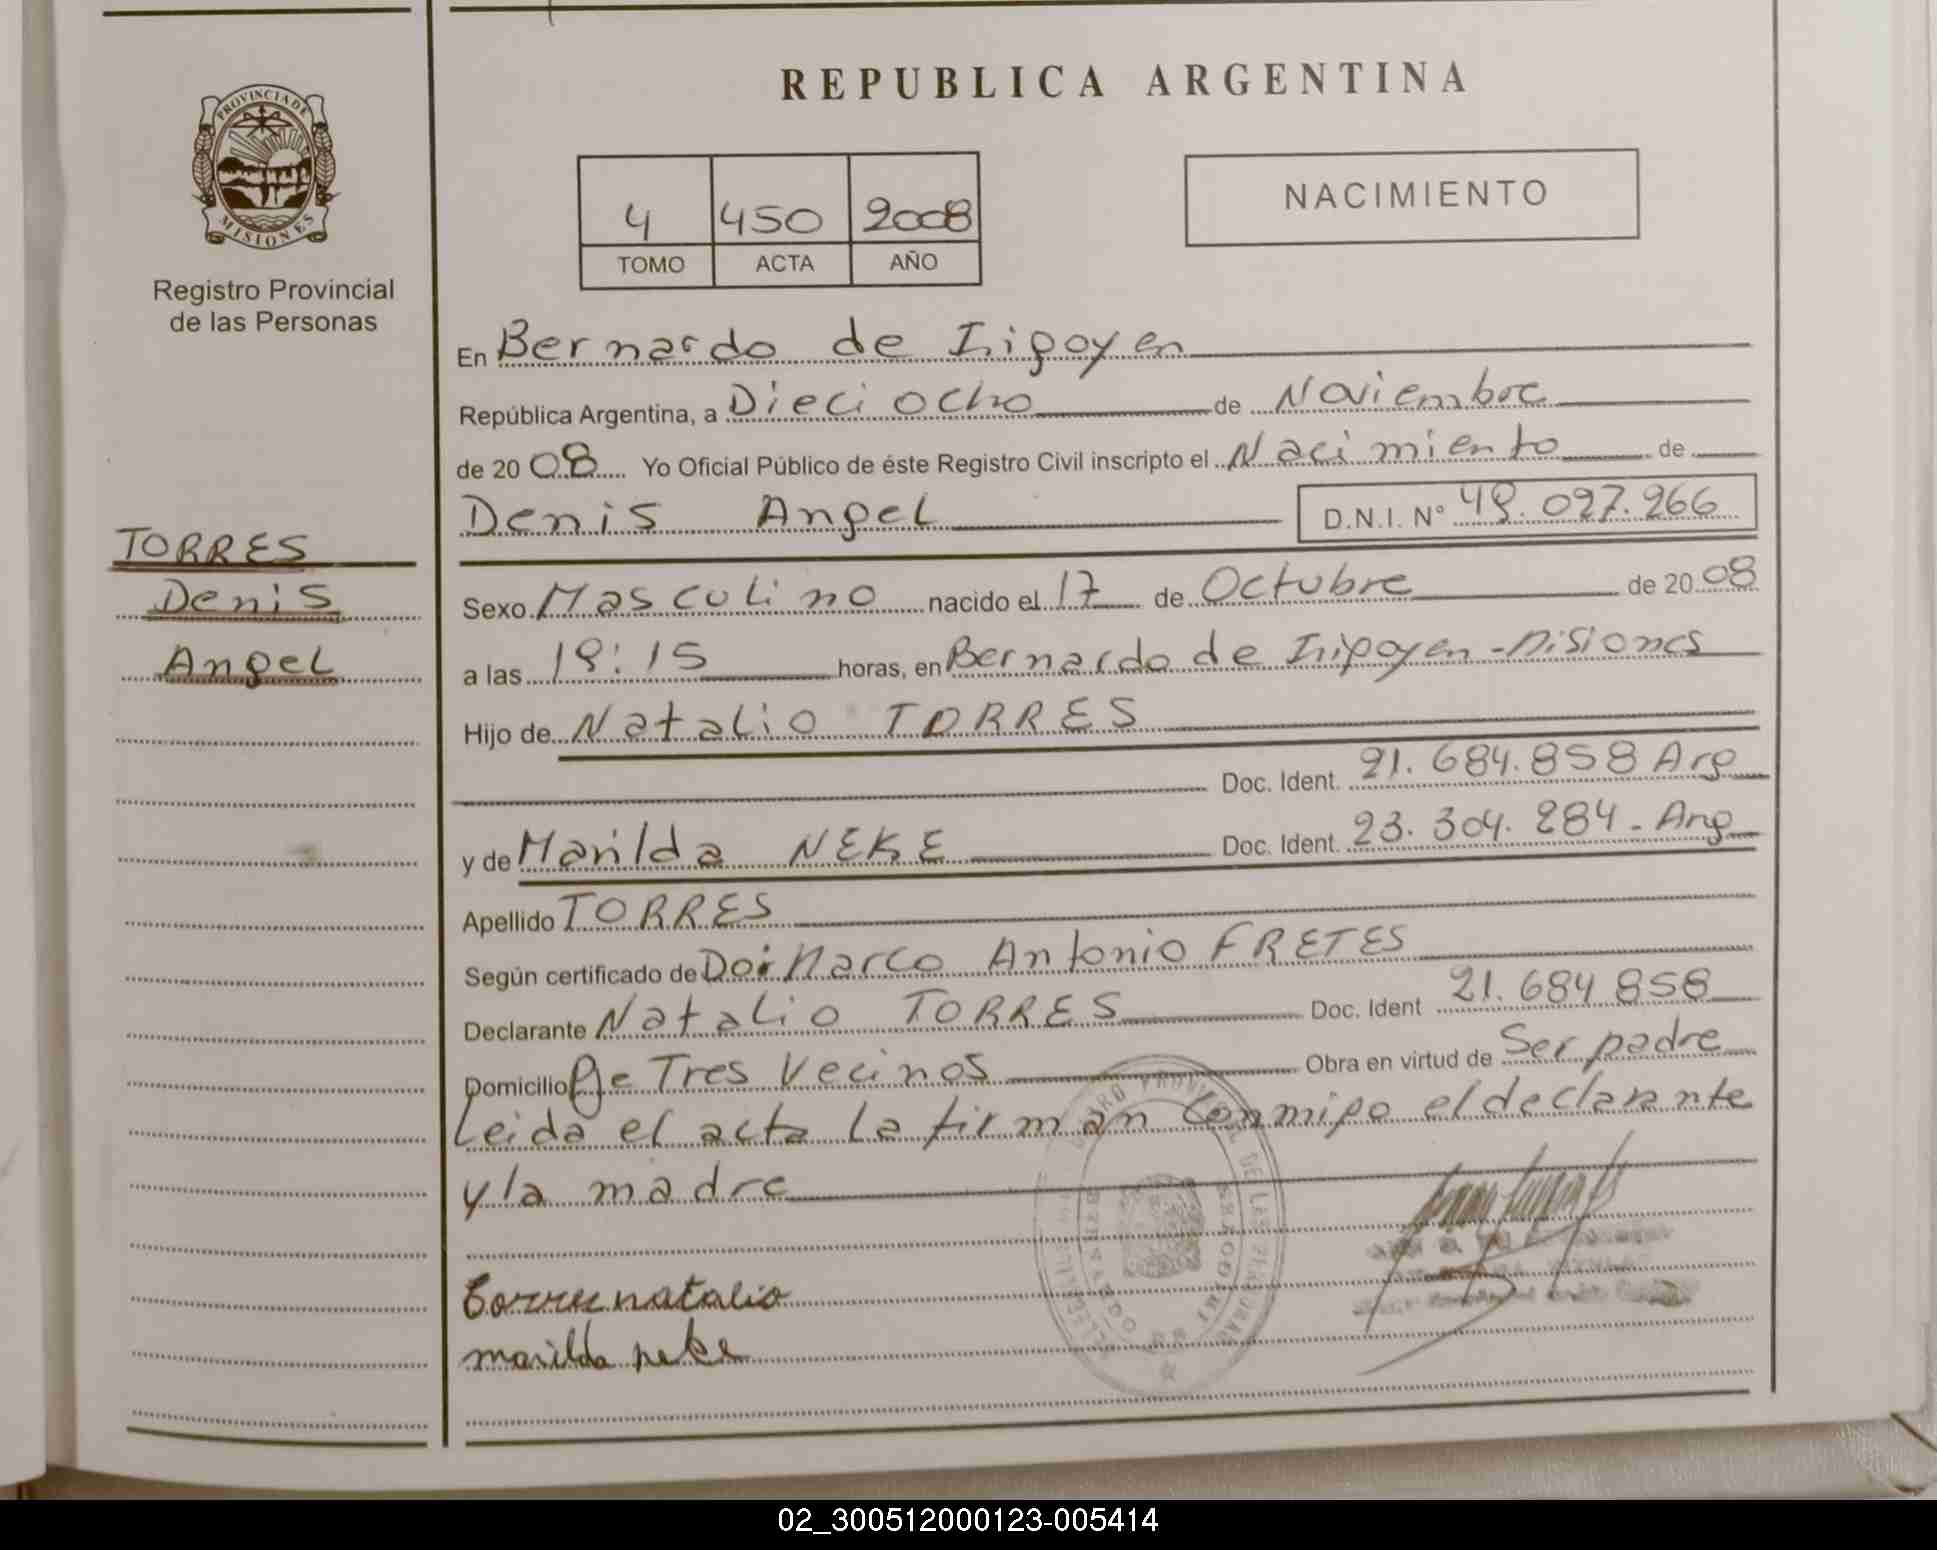 REPUBLICA ARGENTINA
PROVINCIA DE
MISIONES
Registro Provincial
de las Personas
4 450 2008
TOMO ACTA AÑO
NACIMIENTO
En Bernardo de Irigoyen
República Argentina, a Dieciocho de Noviembre
de 2008 Yo Oficial Público de éste Registro Civil inscripto el Nacimiento de
Denis Angel D.N.I. Nº 49.097.266
TORRES
Denis
Angel
Sexo Masculino nacido el 17 de Octubre de 2008
a las 19:15 horas, en Bernardo de Irigoyen - Misiones
Hijo de Natalio TORRES
Doc. Ident. 21.684.858 Arg
y de Marilda NEKE Doc. Ident. 23.304.284 - Arg
Apellido TORRES
Según certificado de Marco Antonio FRETES
Declarante Natalio TORRES Doc. Ident 21.684 858
Domicilio Pje Tres Vecinos Obra en virtud de Ser padre
Leida el acta la firman conmigo el declarante
y la madre
Torres natalio
marilda neke
02_300512000123-005414